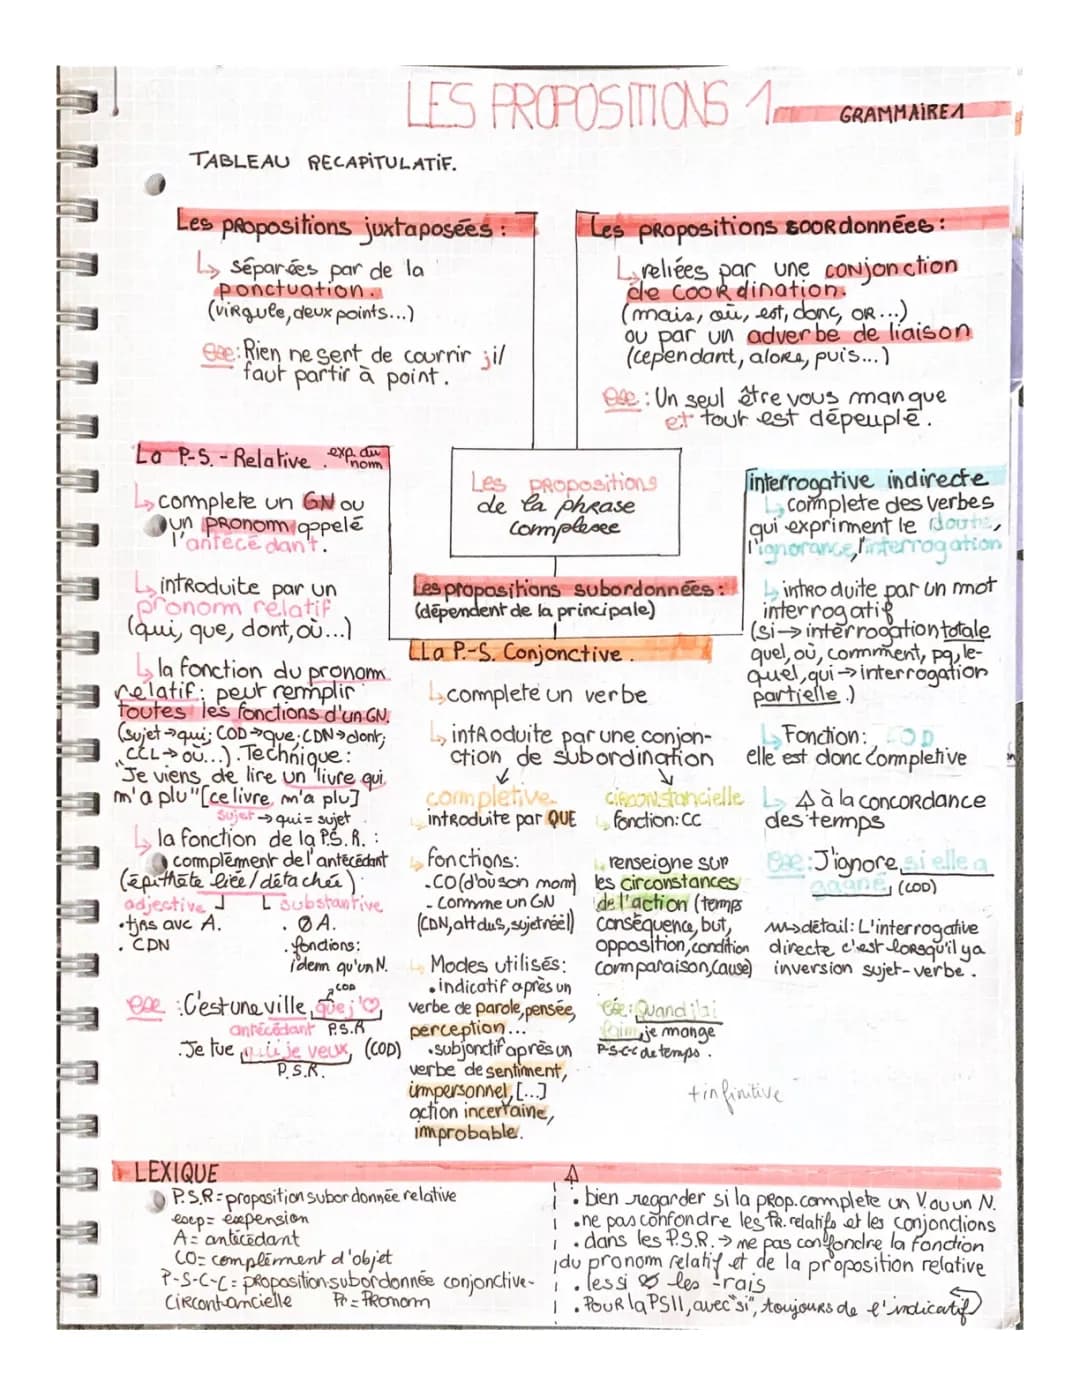 LES PROPOSITIONS 1
GRAMMAIRE 1
TABLEAU RECAPITULATIF.
Les propositions juxtaposées :
↳ séparées par de la
ponctuation.
(virgule, deux points...)
exe : Rien ne sert de courrir ; il
faut partir à point.
Les propositions coordonnées :
↳ reliées par une conjonction
de coordination.
(mais, où, est, donc, or...)
ou par un adverbe de liaison
(cependant, alors, puis...)
exe : Un seul être vous manque
et tout est dépeuplé.
Les propositions
de la phrase
complexe
Les propositions subordonnées :
(dépendent de la principale)
La P-S.-Relative. exp. du
nom
↳ complete un GN ou
un pronom appelé
l'antécédant.
↳ introduite par un
pronom relatif
(qui, que, dont, où...)
↳ la fonction du pronom
relatif : peut remplir
toutes les fonctions d'un GN.
(sujet → qui; COD → que; CDN → dont;
CCL → où...). Technique :
"Je viens de lire un livre qui
m'a plu" [ce livre m'a plu]
sujet → qui = sujet
↳ la fonction de la P.S.R. :
complément de l'antécédant
(épithète liée/détachée)
adjective substantive
• tjrs avc A.
. CDN
. Ø A.
. fonctions :
idem qu'un N.
exe : C'est une ville que j'♡
COD
antécédant P.S.R
. Je tue qui je veux, (COD)
P.S.R.
La P.-S. Conjonctive.
↳ complete un verbe
↳ introduite par une conjon-
ction de subordination
complétive
introduite par QUE
↳ fonctions :
. CO (d'où son nom)
- comme un GN
(CDN, att du S, sujet réel)
↳ Modes utilisés :
• indicatif après un
verbe de parole, pensée,
perception...
• subjonctif après un
verbe de sentiment,
impersonnel, [...]
action incertaine,
improbable.
circonstancielle
↳ fonction : CC
↳ renseigne sur
les circonstances
de l'action (temps
conséquence, but,
opposition, condition
comparaison, cause)
exe : Quand j'ai
faim, je mange
P-S-C-C de temps.
+ infinitive
interrogative indirecte
↳ complete des verbes
qui expriment le doute,
l'ignorance, l'interrogation
↳ introduite par un mot
interrogatif
(si → interrogation totale
quel, où, comment, pq, le-
quel, qui → interrogation
partielle.)
↳ Fonction : COD
elle est donc complétive
↳ ⚠ à la concordance
des temps
exe : J'ignore si elle a
gagné, (COD)
→ détail : L'interrogative
directe c'est lorsqu'il y a
inversion sujet-verbe.
LEXIQUE
P.S.R = proposition subordonnée relative
exp = expension
A = antécédant
CO = complément d'objet
P-S-C-C = proposition subordonnée conjonctive-
circonstancielle Pr = Pronom
⚠
• bien regarder si la prop. complete un V. ou un N.
• ne pas confondre les Pr. relatifs et les conjonctions
• dans les P.S.R. → ne pas confondre la fonction
du pronom relatif et de la proposition relative
• les si les -rais
• Pour la PSII, avec "si", toujours de l'indicatif